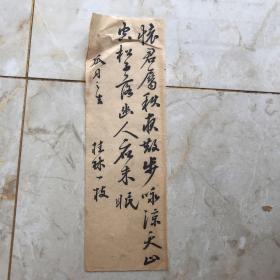 怀君属秋夜散步咏凉天山
空松子落幽人应未眠
孤月之生
桂林一枝